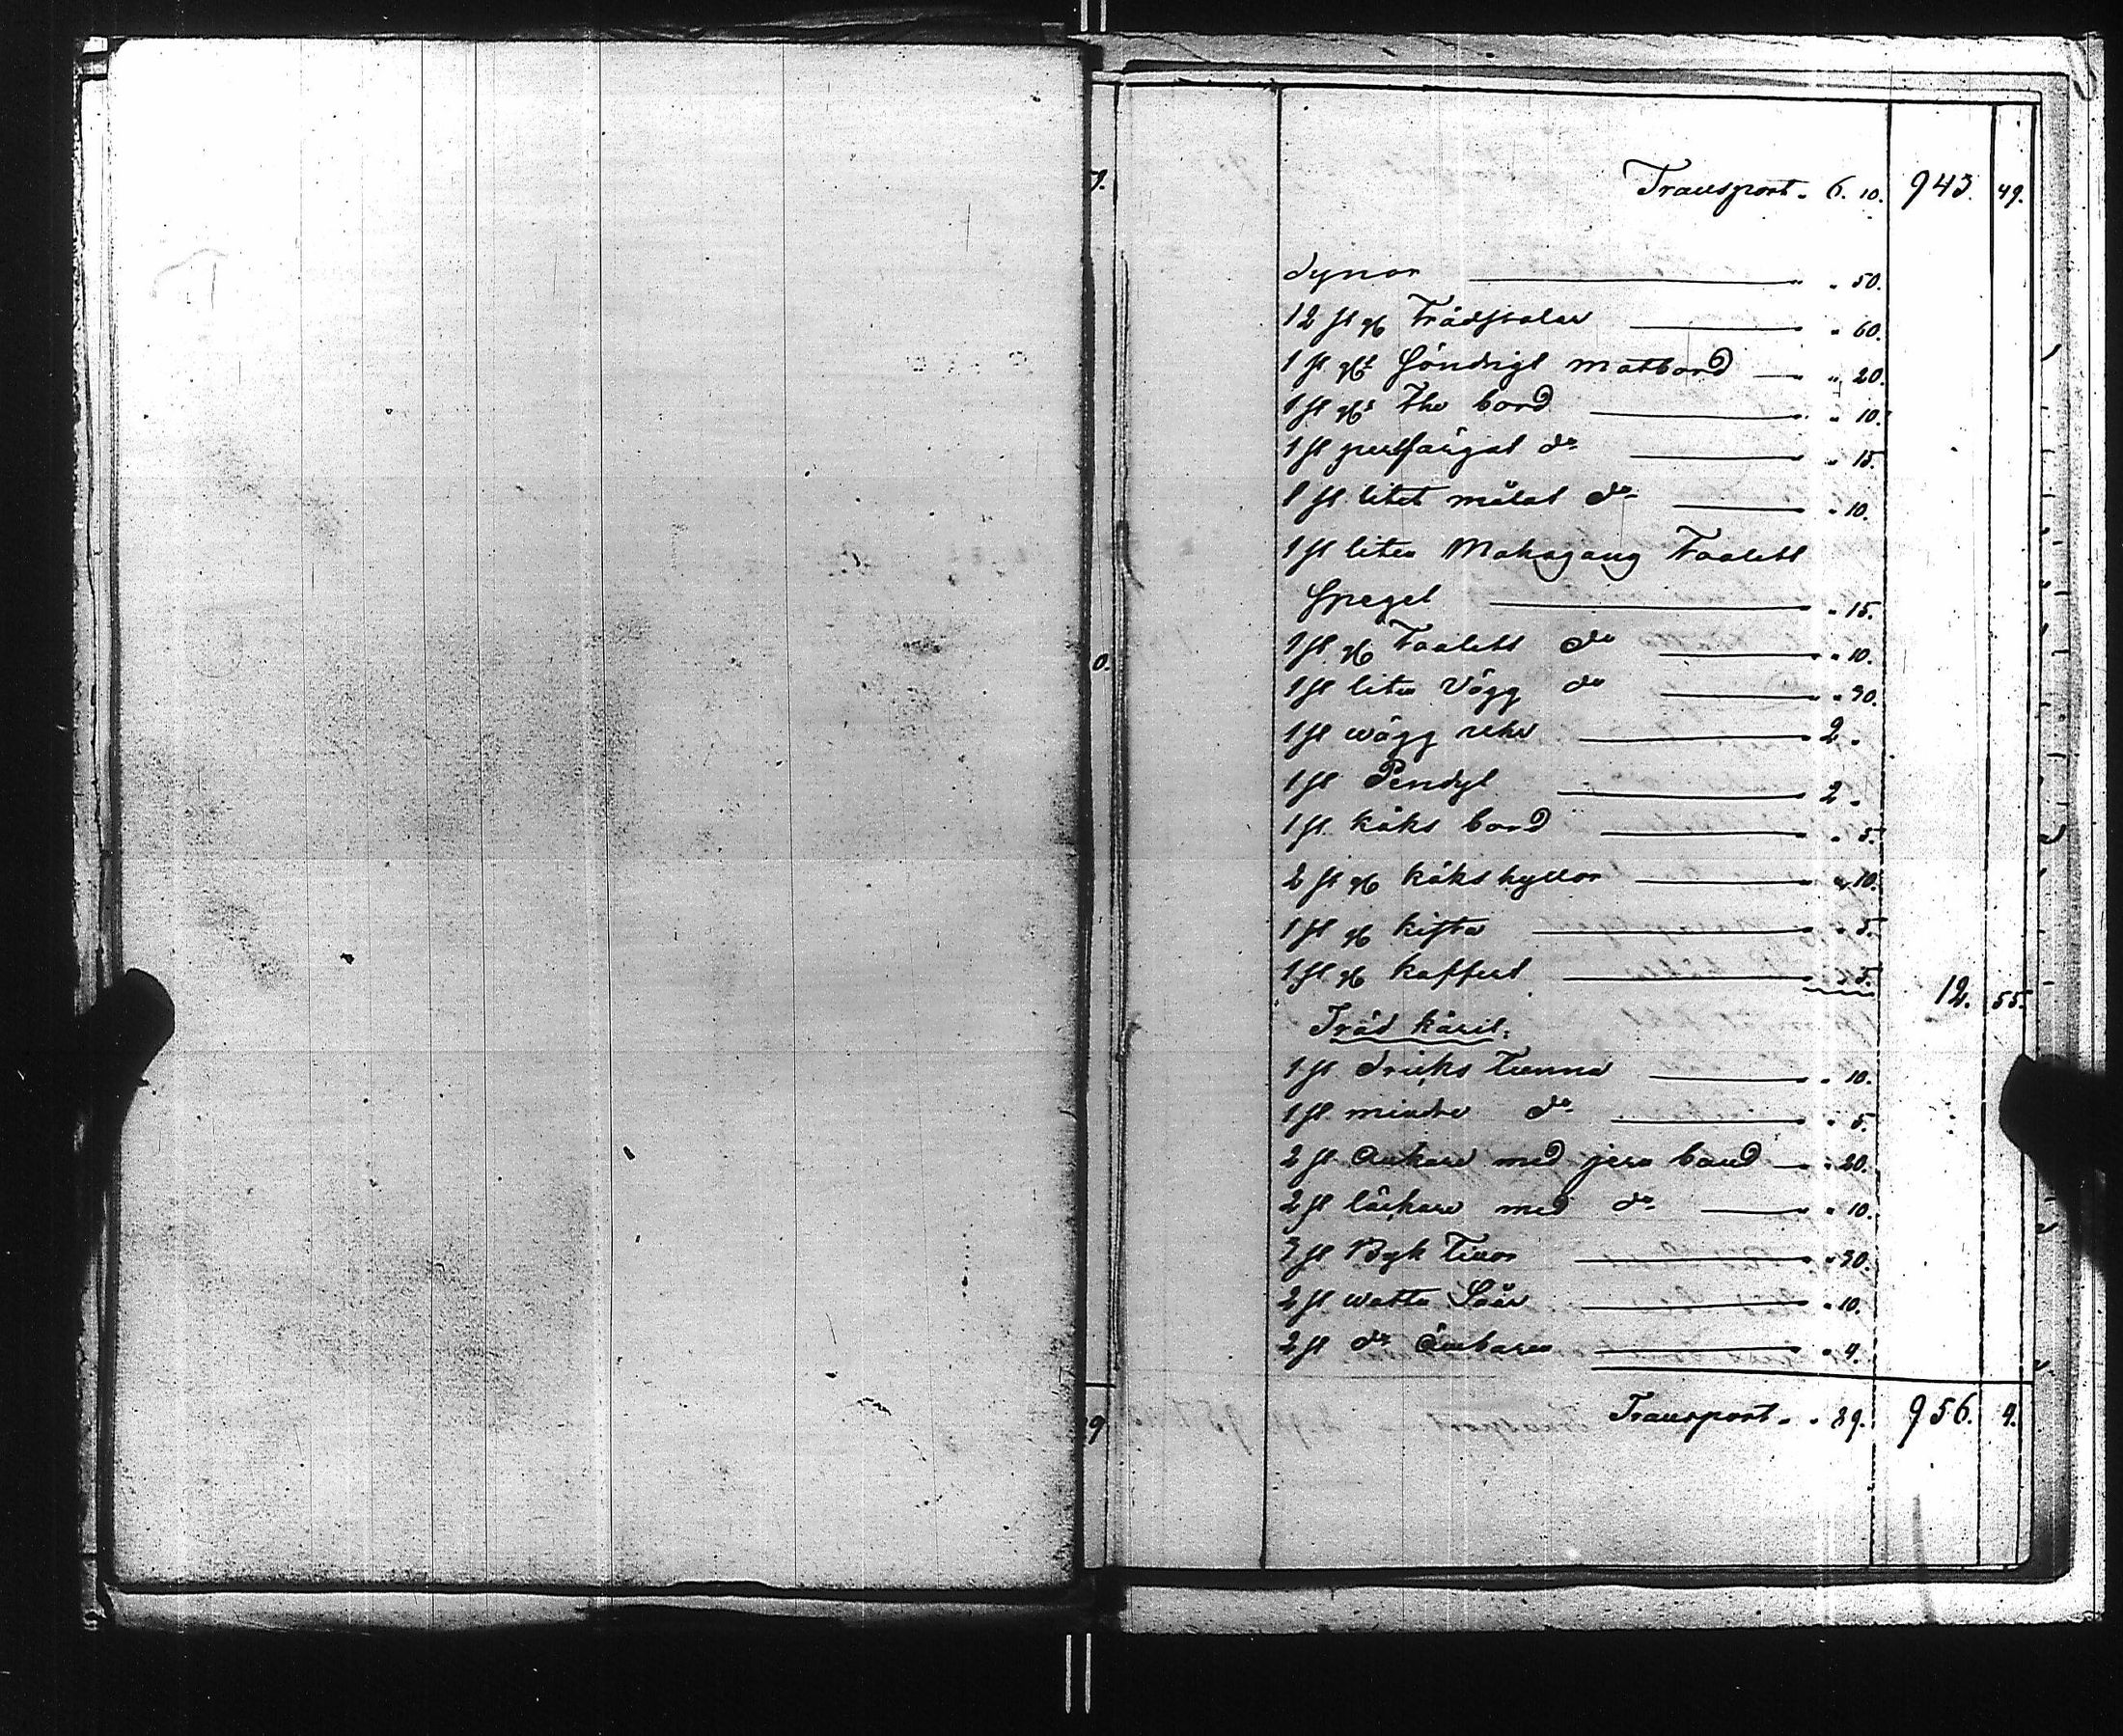 Transport. 6. 10. 943. 49.
dynor " 50.
12 st gl Trädstolar " 60.
1 st glt söndrigt matbord " 20.
1 st glt The bord " 10.
1 st perlfärgat do " 15.
1 st litet målat do " 10.
1 st liten Mahogany Toalett
Spegel " 15.
1 st gl Toalett do " 10.
1 st liten Vägg do " 30.
1 st wägg uhr 2 "
1 st Pendyl 2 "
1 st köks bord " 5.
2 st gl kökshyllor " 10.
1 st gl kista " 5.
1 st gl koffert " 5. 12. 55.
Träd käril:
1 st dricks Tunna " 10.
1 st mindre do " 5.
2 st Ankare med jern band " 20.
2 st läckare med do " 10.
3 st Byk Tinor " 30.
2 st watten Såar " 10.
2 st do Ämbaren " 4.
Transport. " 89. 956. 4.